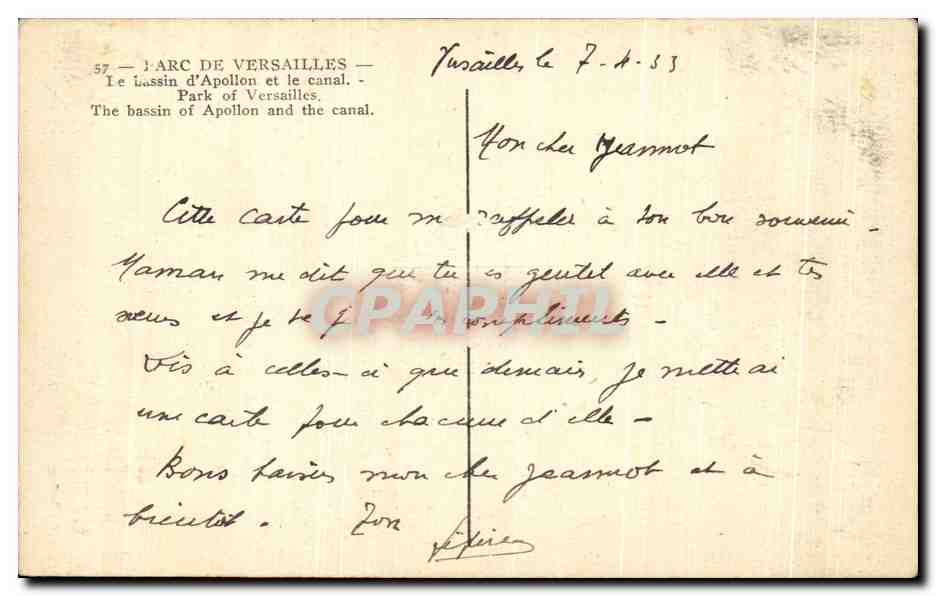 57 — PARC DE VERSAILLES —
Le bassin d'Apollon et le canal. -
Park of Versailles.
The bassin of Apollon and the canal.
Versailles le 7-4-33
Mon cher Jeannot
Cette carte pour me rappeler à ton bon souvenir.
Maman me dit que tu es gentil avec elle et tes
sœurs et je te compliments -
Dis à celles-ci que demain, je mettrai
une carte pour chacune d'elle -
Bons baisers mon cher Jeannot et à
bientôt. Ton
CPAPHIL